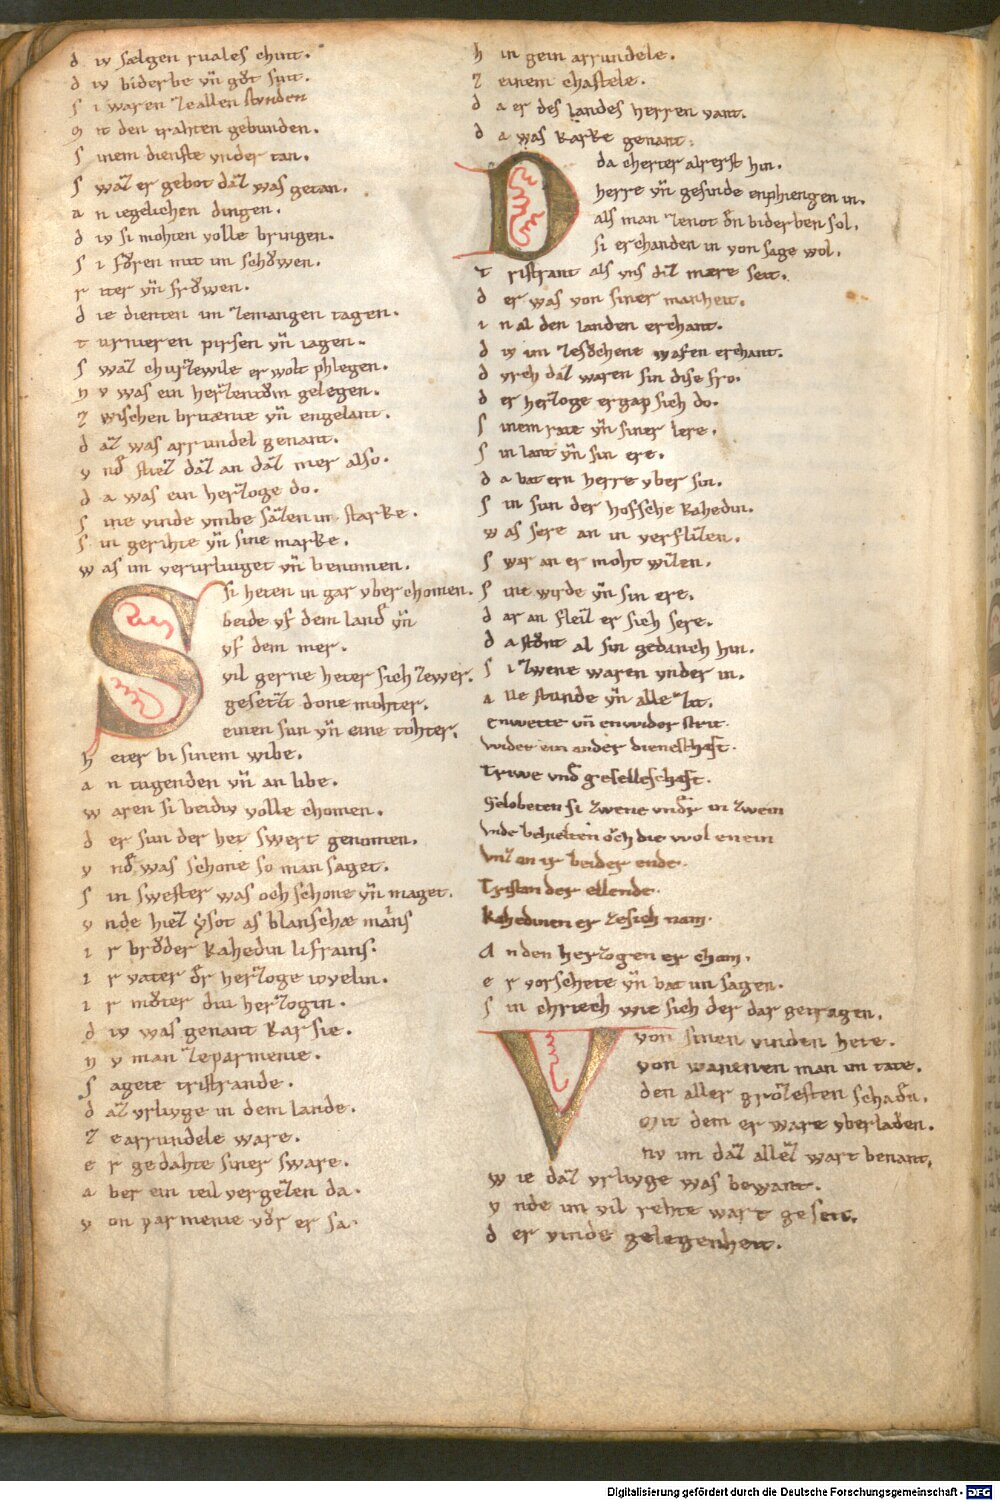 d iv sælgen ruales chint.
d iv biderbe vñ gůt sint.
s i waren zeallen stunden
m it den trahten gebunden.
s inem dienste vnder tan.
s waz er gebot daz was getan.
a n iegelichen dingen.
d iv si mohten volle bringen.
s i fůren mit im schǒwen.
r iter vñ frǒwen.
d ie dienten im zemangen tagen.
t urnieren pirsen vñ iagen.
s waz churzewile er wolt phlegen.
n v was ein herzentům gelegen.
z wischen britanie vñ engelant.
d az was arrundel genant.
v nd stiez daz an daz mer also.
d a was ein herzoge do.
s ine vinde vmbe sazen in starke.
s in gerihte vñ sine marke.
w as im verurluiget vñ benomen.
Si heten in gar vber chomen.
beide vf dem land vñ
vf dem mer.
vil gerne heter sich zewer.
gesetzt done mohter.
einen sun vñ eine tohter.
h eter bi sinem wibe.
a n tugenden vñ an libe.
w aren si beidiv volle chomen.
d er sun der het swert genomen.
v nd was schone so man saget.
s in swester was och schone vñ maget.
v nde hiez ysot as blanschæ mains
i r brůder kahedin li frains.
i r vater der herzoge iovelin.
i r můter diu herzogin.
d iv was genant karsie.
n v man zeparmenie.
s agete tristrande.
d az vrluge in dem lande.
z earrundele ware.
e r gedahte siner sware.
a ber ein teil vergezen da.
v on parmenie vůr er sa.
h in gein arrundele.
z einem chastele.
d a er des landes herren vant.
d a was karke genant.
Da cherter alrerst hin.
herre vñ gesinde enphiengen in.
als man zenot den biderben sol.
si erchanden in von sage wol.
t ristrant als vns diz mære seit.
d er was von siner manheit.
i n al den landen erchant.
d iv im zesůchene wafen erchant.
d vrch daz waren sin dise fro.
d er herzoge ergap sich do.
s inem rate vñ siner lere.
s in lant vñ sin ere.
d a bat ern herre vber sin.
s in sun der hofsche kahedin.
w as sere an in verflizen.
s war an er moht wizen.
s ine wirde vñ sin ere.
d ar an fleiz er sich sere.
d a stůnt al sin gedanch hin.
s i zwene waren vnder in.
a lle stunde vñ alle zit.
enwette vñ enwider strit.
wider ein ander dieneschaft.
Triwe vnd geselleschaft.
Gelobeten si zwene vnder in zwein
vnde behielten ǒch die wol enein
vnz an ir beider ende.
Tristan der ellende.
kahedinen er zesich nam.
A nden herzogen er cham.
e r vorschete vñ bat im sagen.
s in chriech wie sich der dar getragen.
Von sinen vinden hete.
von wannen man im tate.
den aller grözesten schaden.
mit dem er ware vberladen.
nv im daz allez wart benant,
w ie daz vrluge was bewant.
v nde im vil rehte wart geseit.
d er vinde gelegenheit.
Digitalisierung gefördert durch die Deutsche Forschungsgemeinschaft - DFG